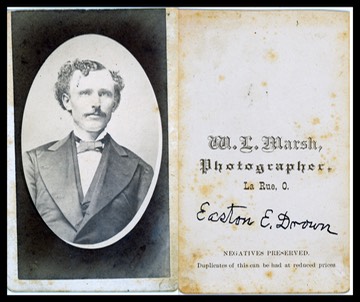 W. L. Marsh,
Photographer.
La Rue, O.
Easton E. Drown
NEGATIVES PRESERVED.
Duplicates of this can be had at reduced prices